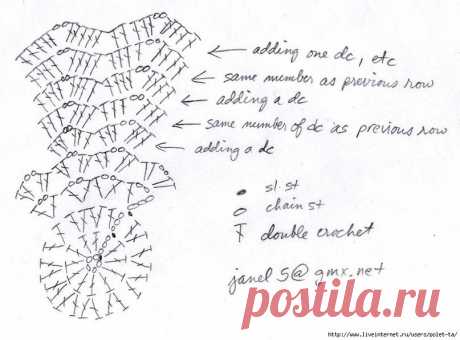 adding one dc, etc
same number as previous row
adding a dc
same number of dc as previous row
adding a dc
sl. st
chain st
double crochet
janel5@gmx.net
postila.ru
http://www.liveinternet.ru/users/polet-ta/